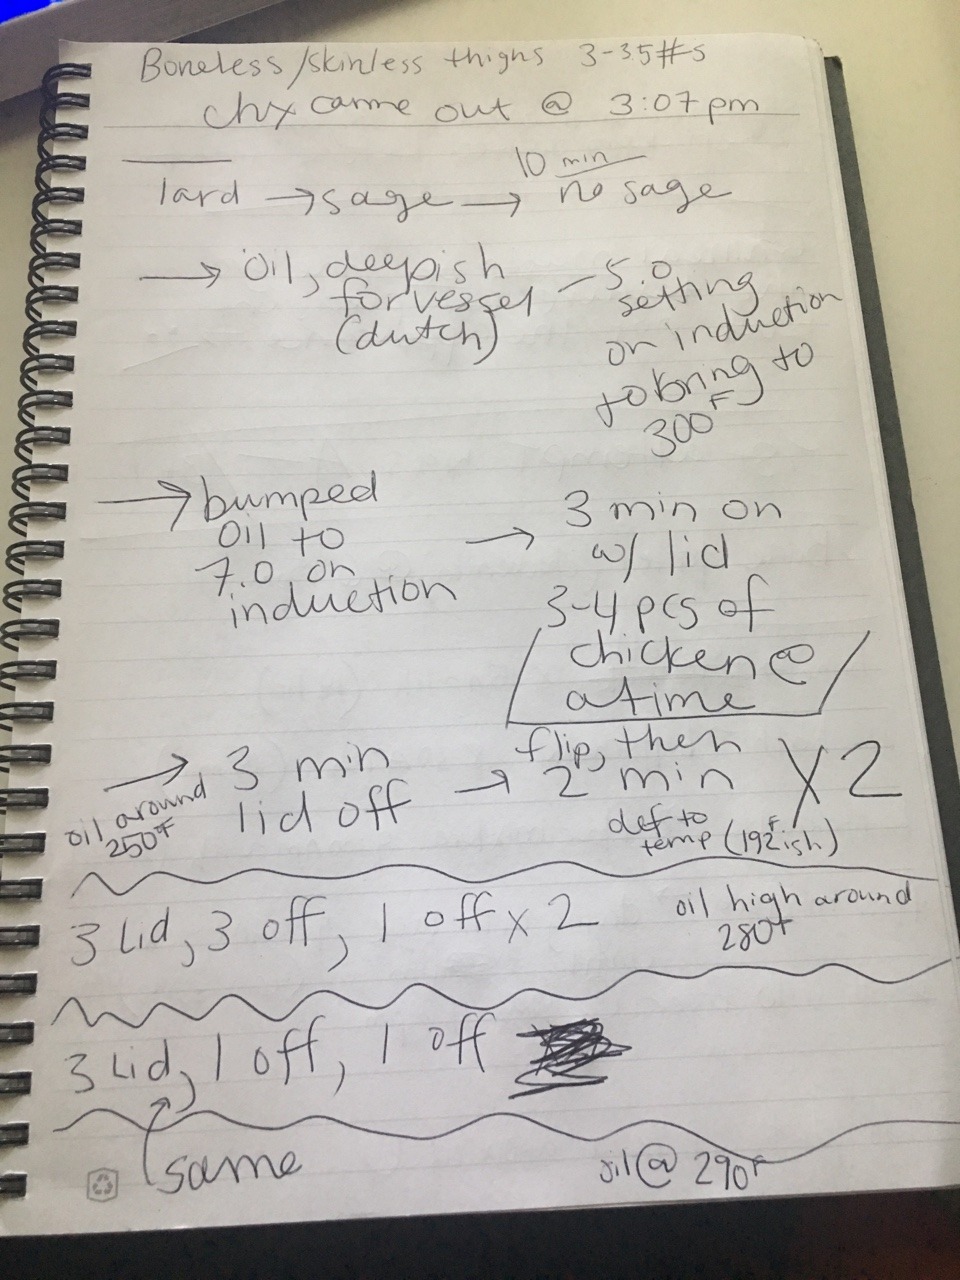 Boneless/skinless thighs 3-3.5#s
chx came out @ 3:07pm
lard → sage → 10 min no sage
→ oil, deepish
for vessel
(dutch)
- 5.0
setting
on induction
to bring to
300F
→ bumped
oil to
7.0 on
induction
→ 3 min on
w/ lid
3-4 pcs of
chicken @
a time
→ 3 min
lid off
oil around
250°F
→ flip, then
2 min X2
def to
temp (192Fish)
3 Lid, 3 off, 1 off x 2
oil high around
280F
3 Lid, 1 off, 1 off
same
oil @ 290F